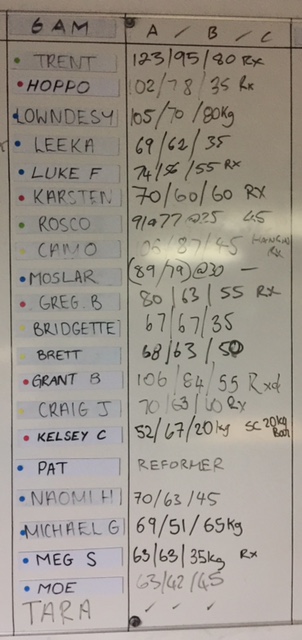 6 AM A / B / C
TRENT 123/95/80 Rx
HOPPO 102/78/35 Rx
LOWNDESY 105/70/80kg
LEEKA 69/62/35
LUKE F 74/56/55 Rx
KARSTEN 70/60/60 RX
ROSCO 91@77 @25 45
CAMO /87/45 Rx
MOSLAR (89/79)@30 —
GREG.B 80/63/55 RX
BRIDGETTE 67/67/35
BRETT 68/63/50
GRANT B 106/84/55 Rxd
CRAIG J 70/63/40 Rx
KELSEY C 52/67/20kg SC 20kg
Bar
PAT REFORMER
NAOMI H 70/63/45
MICHAEL G 69/51/65kg
MEG S 63/63/35kg Rx
MOE 63/42/45
TARA / / /